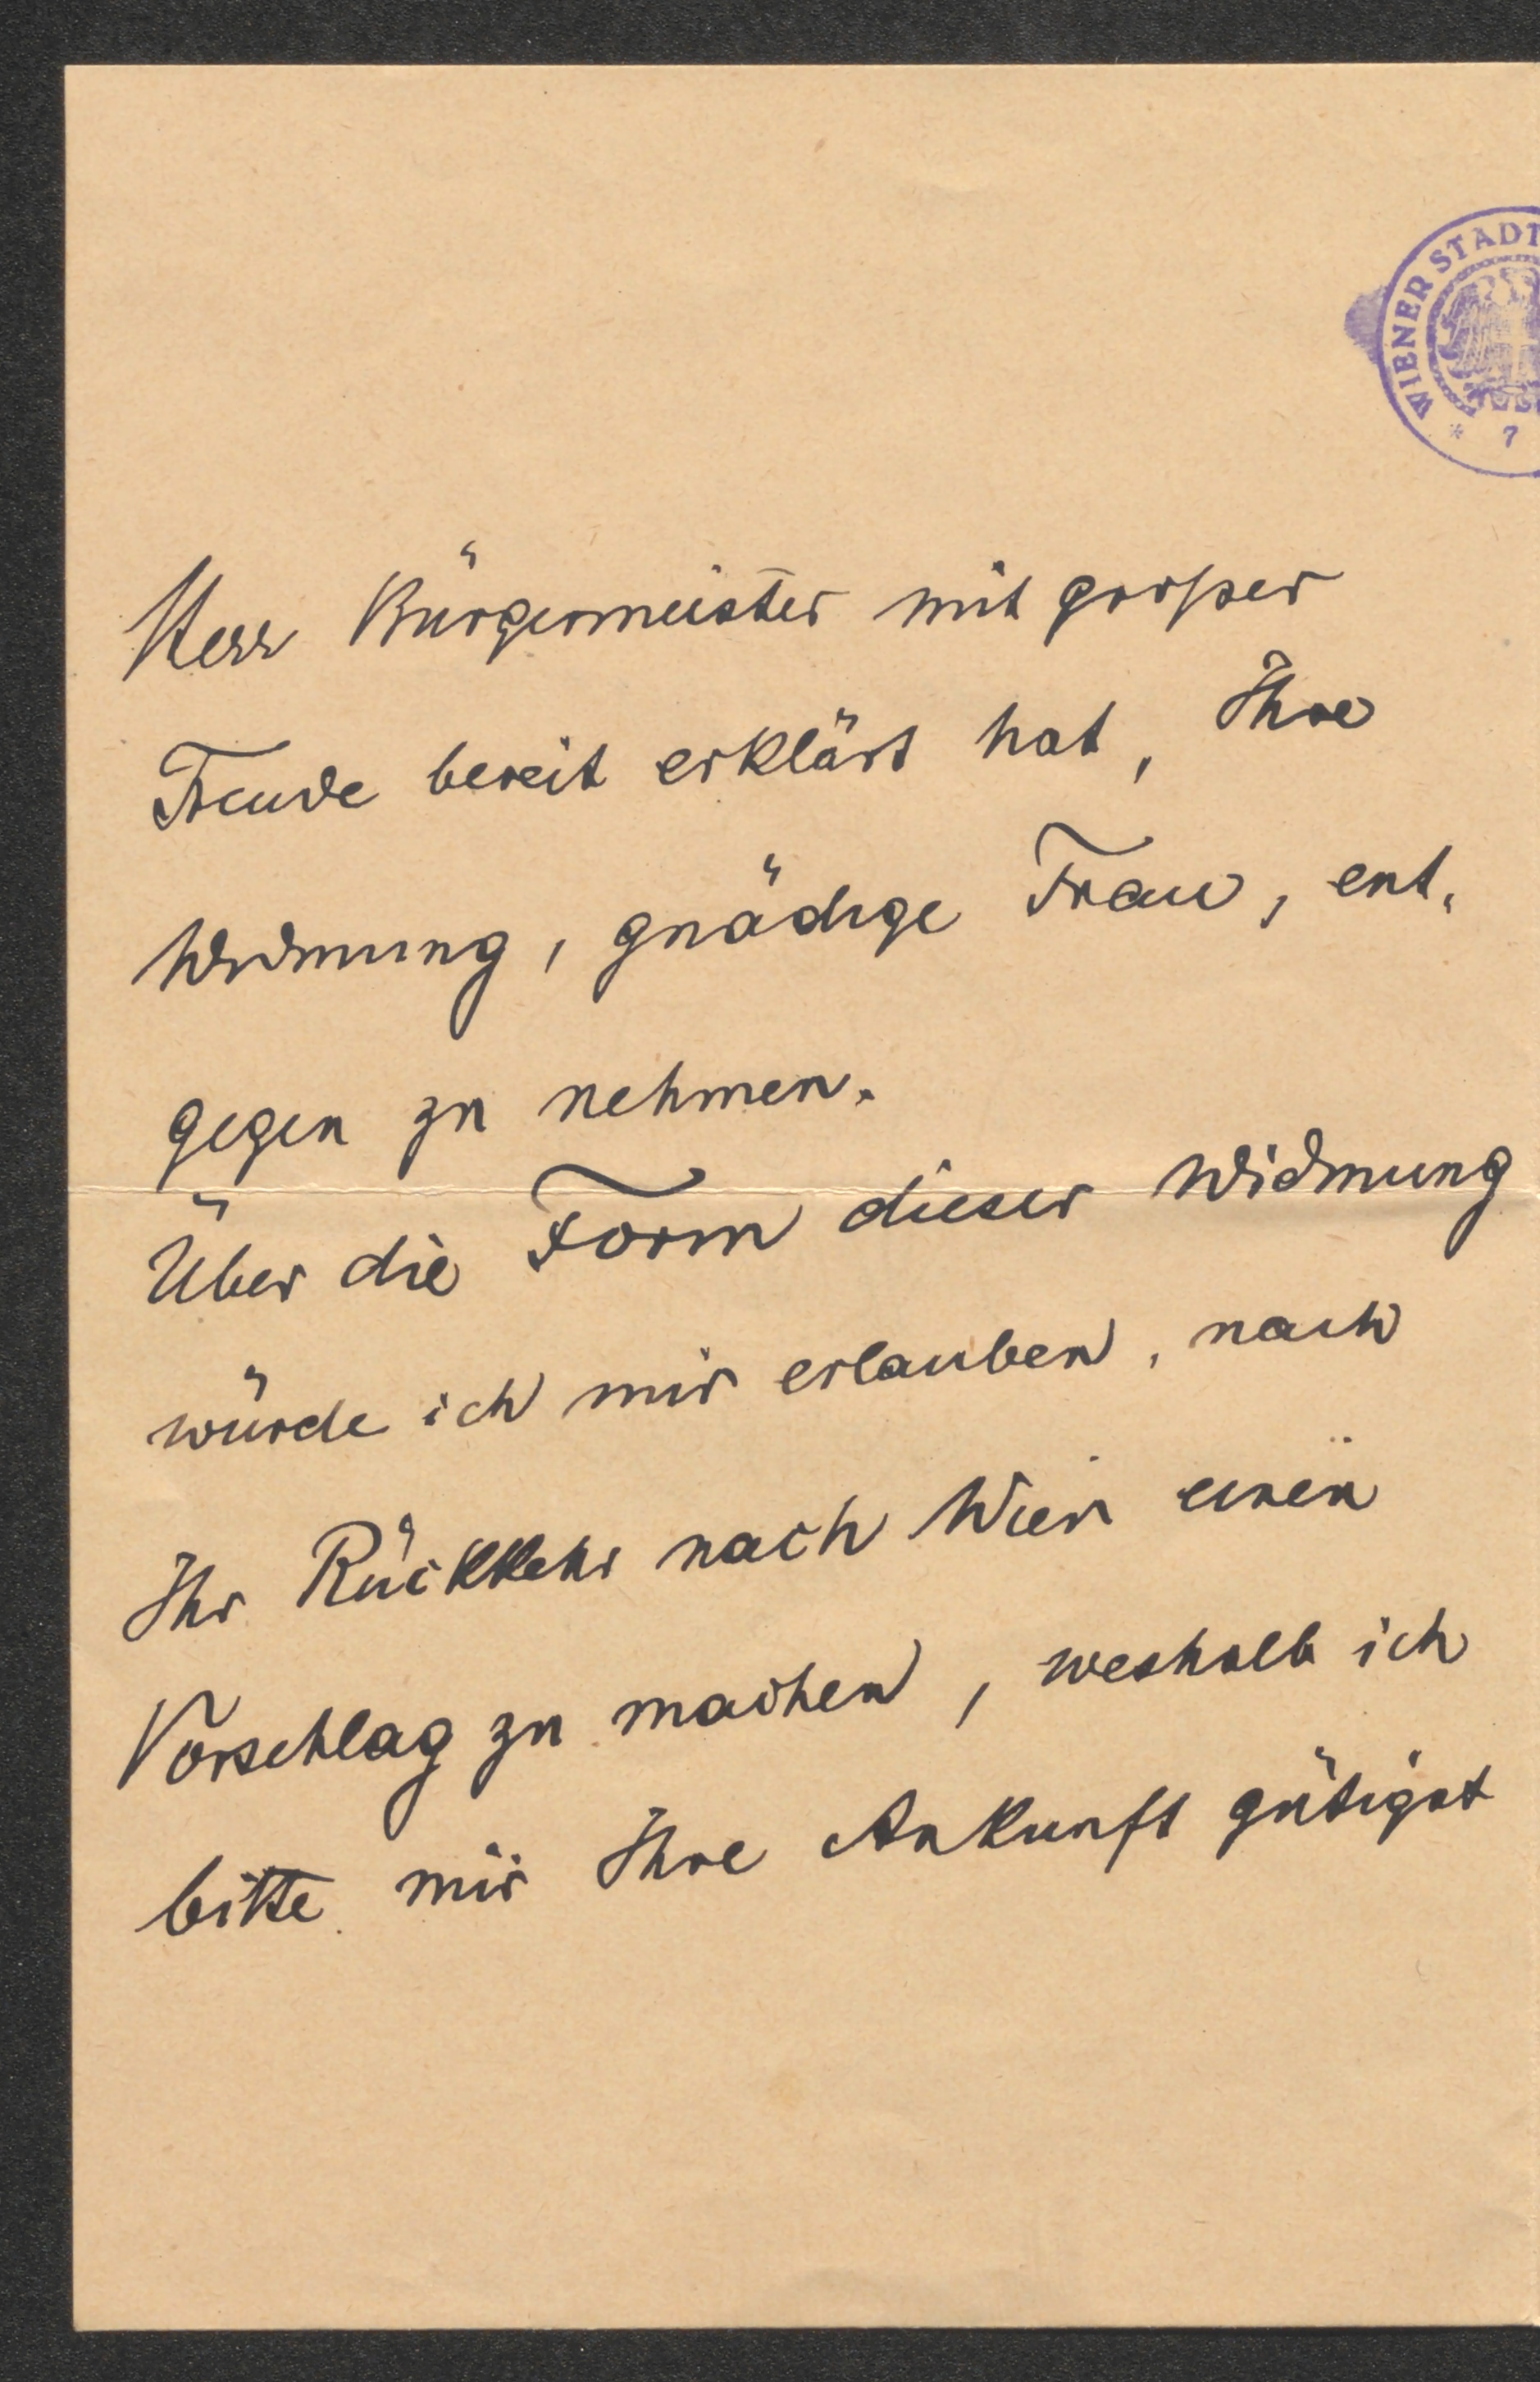 WIENER STADT
* 7
Herr Bürgermeister mit großer
Freude bereit erklärt hat, Ihre
Widmung, gnädige Frau, ent-
gegen zu nehmen.
Über die Form dieser Widmung
würde ich mir erlauben, nach
Ihr Rückkehr nach Wien einen
Vorschlag zu machen, weshalb ich
bitte mir Ihre Ankunft gütigst